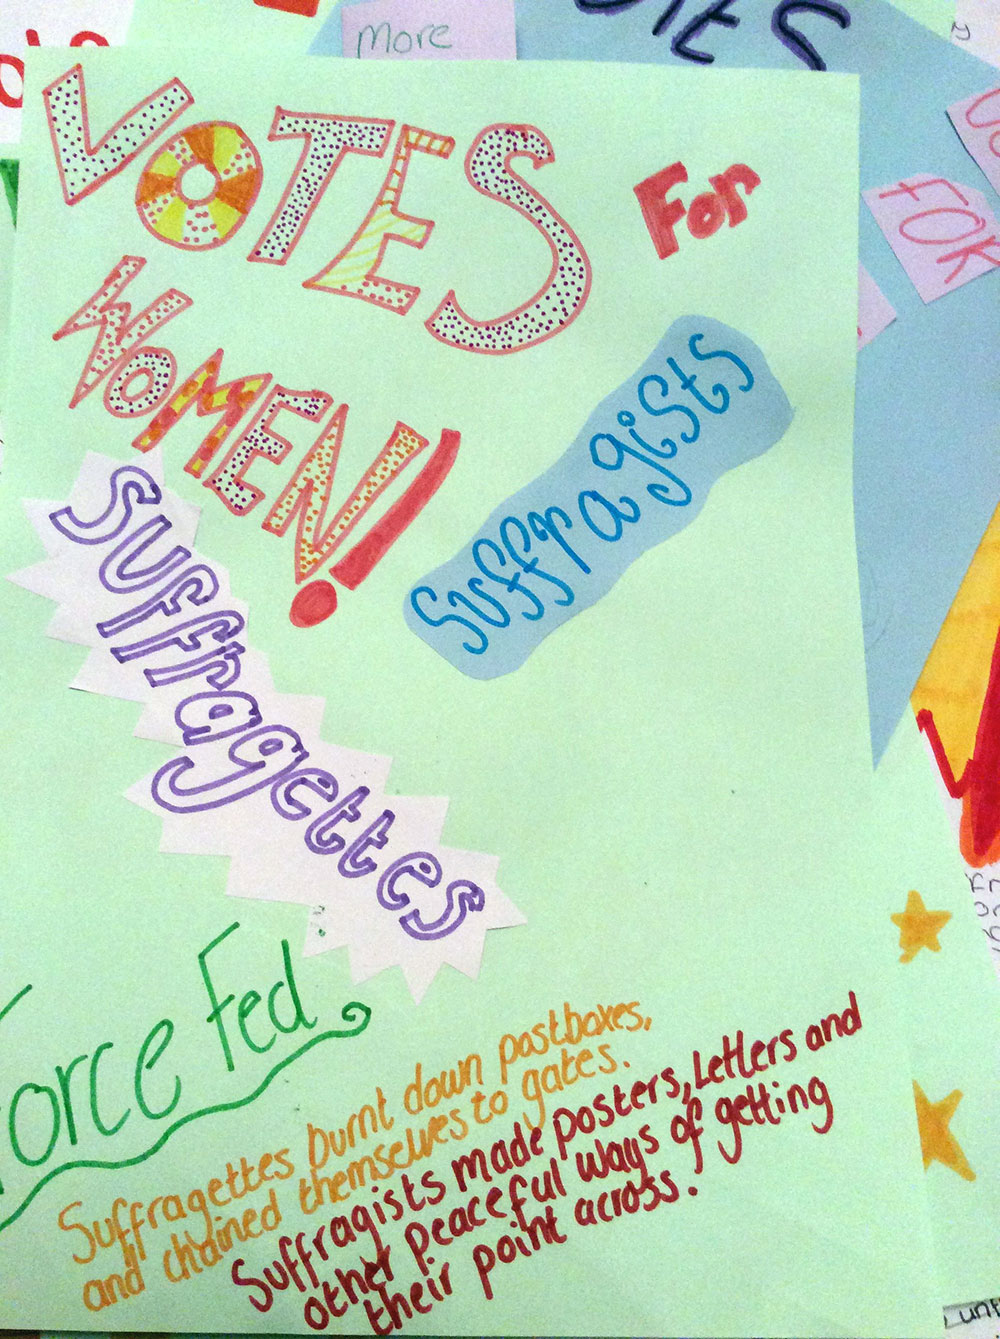 More
VOTES For
WOMEN!
Suffragists
Suffragettes
Force Fed
Suffragettes burnt down postboxes,
and chained themselves to gates.
Suffragists made posters, Letters and
other peaceful ways of getting
their point across.
FOR